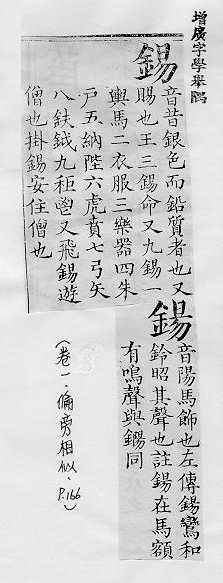 增廣字學舉隅
錫
音昔銀色而鉛質者也又
賜也王三錫命又九錫一
輿馬二衣服三樂器四朱
戶五納陛六虎賁七弓矢
八鈇鉞九秬鬯又飛錫遊
僧也掛錫安住僧也
鍚
音陽馬飾也左傳鍚鸞和
鈴昭其聲也註鍚在馬額
有鳴聲與鐊同
(卷一·偏旁相似. P.166)